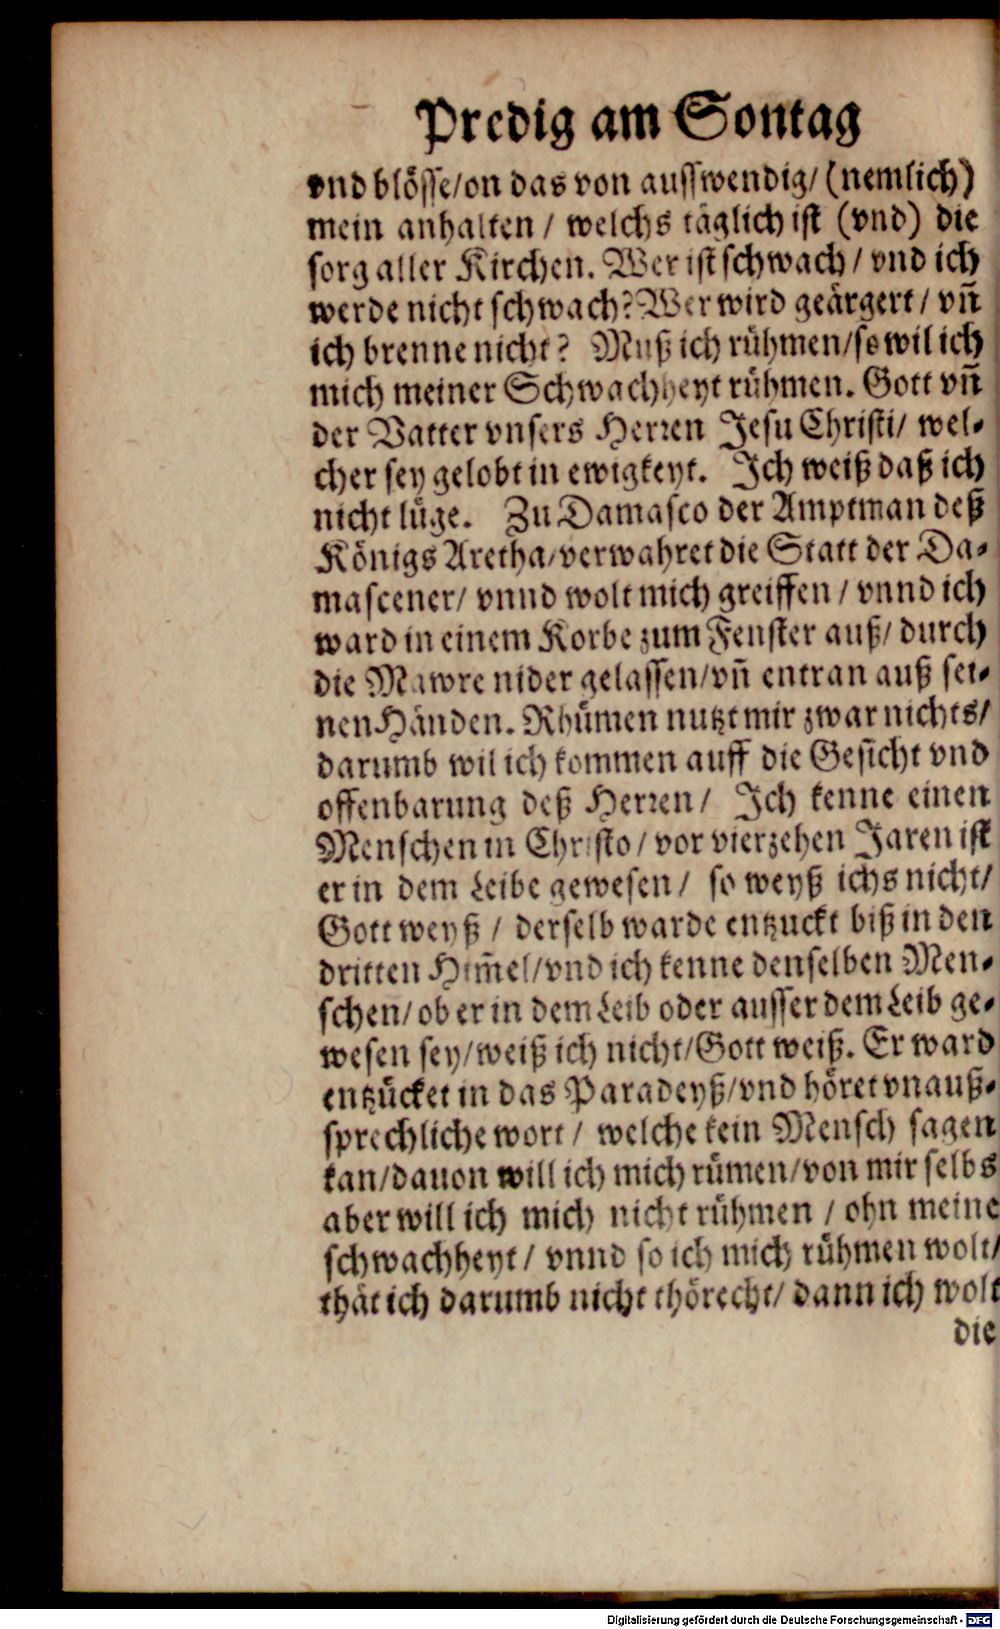 Predig am Sontag
vnd blösse/on das von ausswendig/ (nemlich)
mein anhalten / welchs täglich ist (vnd) die
sorg aller Kirchen. Wer ist schwach / vnd ich
werde nicht schwach? Wer wird geärgert / vñ
ich brenne nicht? Muß ich rühmen/so wil ich
mich meiner Schwachheyt rühmen. Gott vñ
der Vatter vnsers Herren Jesu Christi/ wel-
cher sey gelobt in ewigkeyt. Ich weiß daß ich
nicht lüge. Zu Damasco der Amptman deß
Königs Aretha/verwahret die Statt der Da-
mascener/ vnnd wolt mich greiffen / vnnd ich
ward in einem Korbe zum Fenster auß/ durch
die Mawre nider gelassen/vñ entran auß sei-
nen Händen. Rhümen nutzt mir zwar nichts/
darumb wil ich kommen auff die Gesicht vnd
offenbarung deß Herren/ Ich kenne einen
Menschen in Christo / vor vierzehen Jaren ist
er in dem Leibe gewesen / so weyß ichs nicht/
Gott weyß / derselb warde entzuckt biß in den
dritten Him̃el/vnd ich kenne denselben Men-
schen/ ob er in dem Leib oder ausser dem Leib ge-
wesen sey/weiß ich nicht/Gott weiß. Er ward
entzücket in das Paradeyß/vnd höret vnauß-
sprechliche wort / welche kein Mensch sagen
kan/dauon will ich mich rümen/von mir selbs
aber will ich mich nicht rühmen / ohn meine
schwachheyt / vnnd so ich mich rühmen wolt/
thät ich darumb nicht thörecht/ dann ich wolt
die
Digitalisierung gefördert durch die Deutsche Forschungsgemeinschaft - DFG